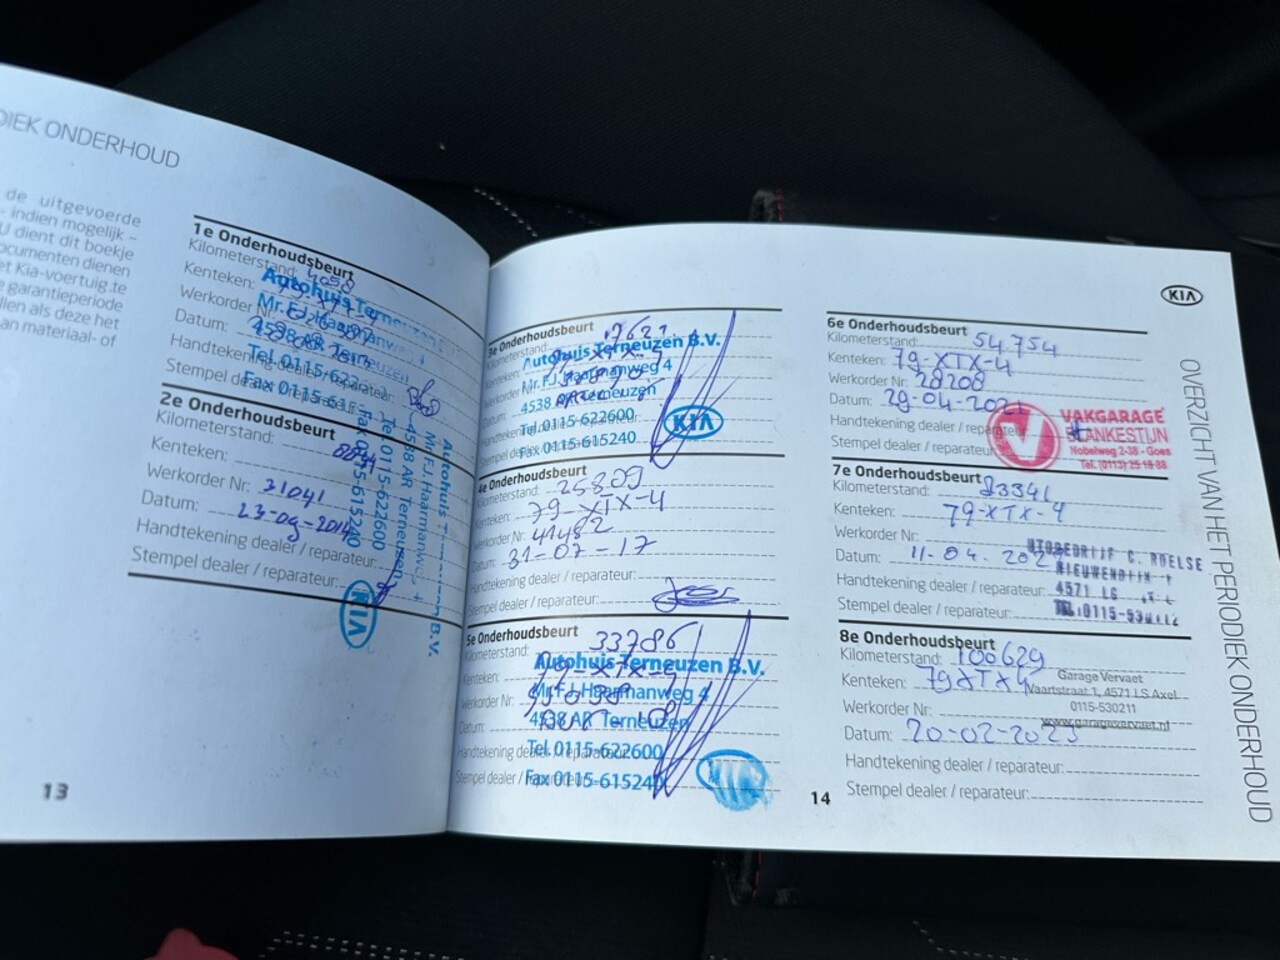 DIEK ONDERHOUD
de uitgevoerde
- indien mogelijk -
U dient dit boekje
ocumenten dienen
et Kia-voertuig te
e garantieperiode
llen als deze het
an materiaal- of
1e Onderhoudsbeurt
Kilometerstand: 4058
Kenteken:
Werkorder Nr:
Datum:
Handtekening dealer / reparateur:
Stempel dealer / reparateur:
Autohuis Terneuzen
Mr. F.J. Haarmanweg 4
4538 AR Terneuzen
Tel. 0115-622
Fax 0115-615
2e Onderhoudsbeurt
Kilometerstand:
Kenteken:
Werkorder Nr: 31041
Datum: 23-09-2014
Handtekening dealer / reparateur:
Stempel dealer / reparateur:
Autohuis T B.V.
Mr. F.J. Haarmanweg 4
4538 AR Terneuzen
Tel. 0115-622600
Fax 0115-615240
KIA
13
3e Onderhoudsbeurt
Kilometerstand:
Kenteken: 79-XTX-4
Werkorder Nr:
Datum:
Handtekening dealer / reparateur:
Stempel dealer / reparateur:
Autohuis Terneuzen B.V.
Mr. F.J. Haarmanweg 4
4538 AR Terneuzen
Tel. 0115-622600
Fax 0115-615240
KIA
4e Onderhoudsbeurt
Kilometerstand: 25809
Kenteken: 79-XTX-4
Werkorder Nr: 41482
Datum: 31-07-17
Handtekening dealer / reparateur:
Stempel dealer / reparateur:
5e Onderhoudsbeurt
Kilometerstand: 33786
Kenteken: 79-XTX-4
Werkorder Nr:
Datum:
Handtekening dealer / reparateur:
Stempel dealer / reparateur:
Autohuis Terneuzen B.V.
Mr. F.J. Haarmanweg 4
4538 AR Terneuzen
Tel. 0115-622600
Fax 0115-615240
14
KIA
6e Onderhoudsbeurt
Kilometerstand: 54.754
Kenteken: 79-XTX-4
Werkorder Nr: 28208
Datum: 29-04-2021
Handtekening dealer / reparateur:
Stempel dealer / reparateur:
VAKGARAGE
BLANKESTIJN
Nobelweg 2-38 - Goes
Tel. (0113) 25 15 88
7e Onderhoudsbeurt
Kilometerstand: 83341
Kenteken: 79-XTX-4
Werkorder Nr:
Datum: 11-04.202
Handtekening dealer / reparateur:
Stempel dealer / reparateur:
UTOBEDRIJF C. ROELSE
NIEUWENDIJK
4571 LS
TEL.:0115-53
8e Onderhoudsbeurt
Kilometerstand: 100629
Kenteken: 79XTX4
Werkorder Nr:
Datum: 20-02-2023
Handtekening dealer / reparateur:
Stempel dealer / reparateur:
Garage Vervaet
Vaartstraat 1, 4571 LS Axel
0115-530211
www.garagevervaet.nl
OVERZICHT VAN HET PERIODIEK ONDERHOUD